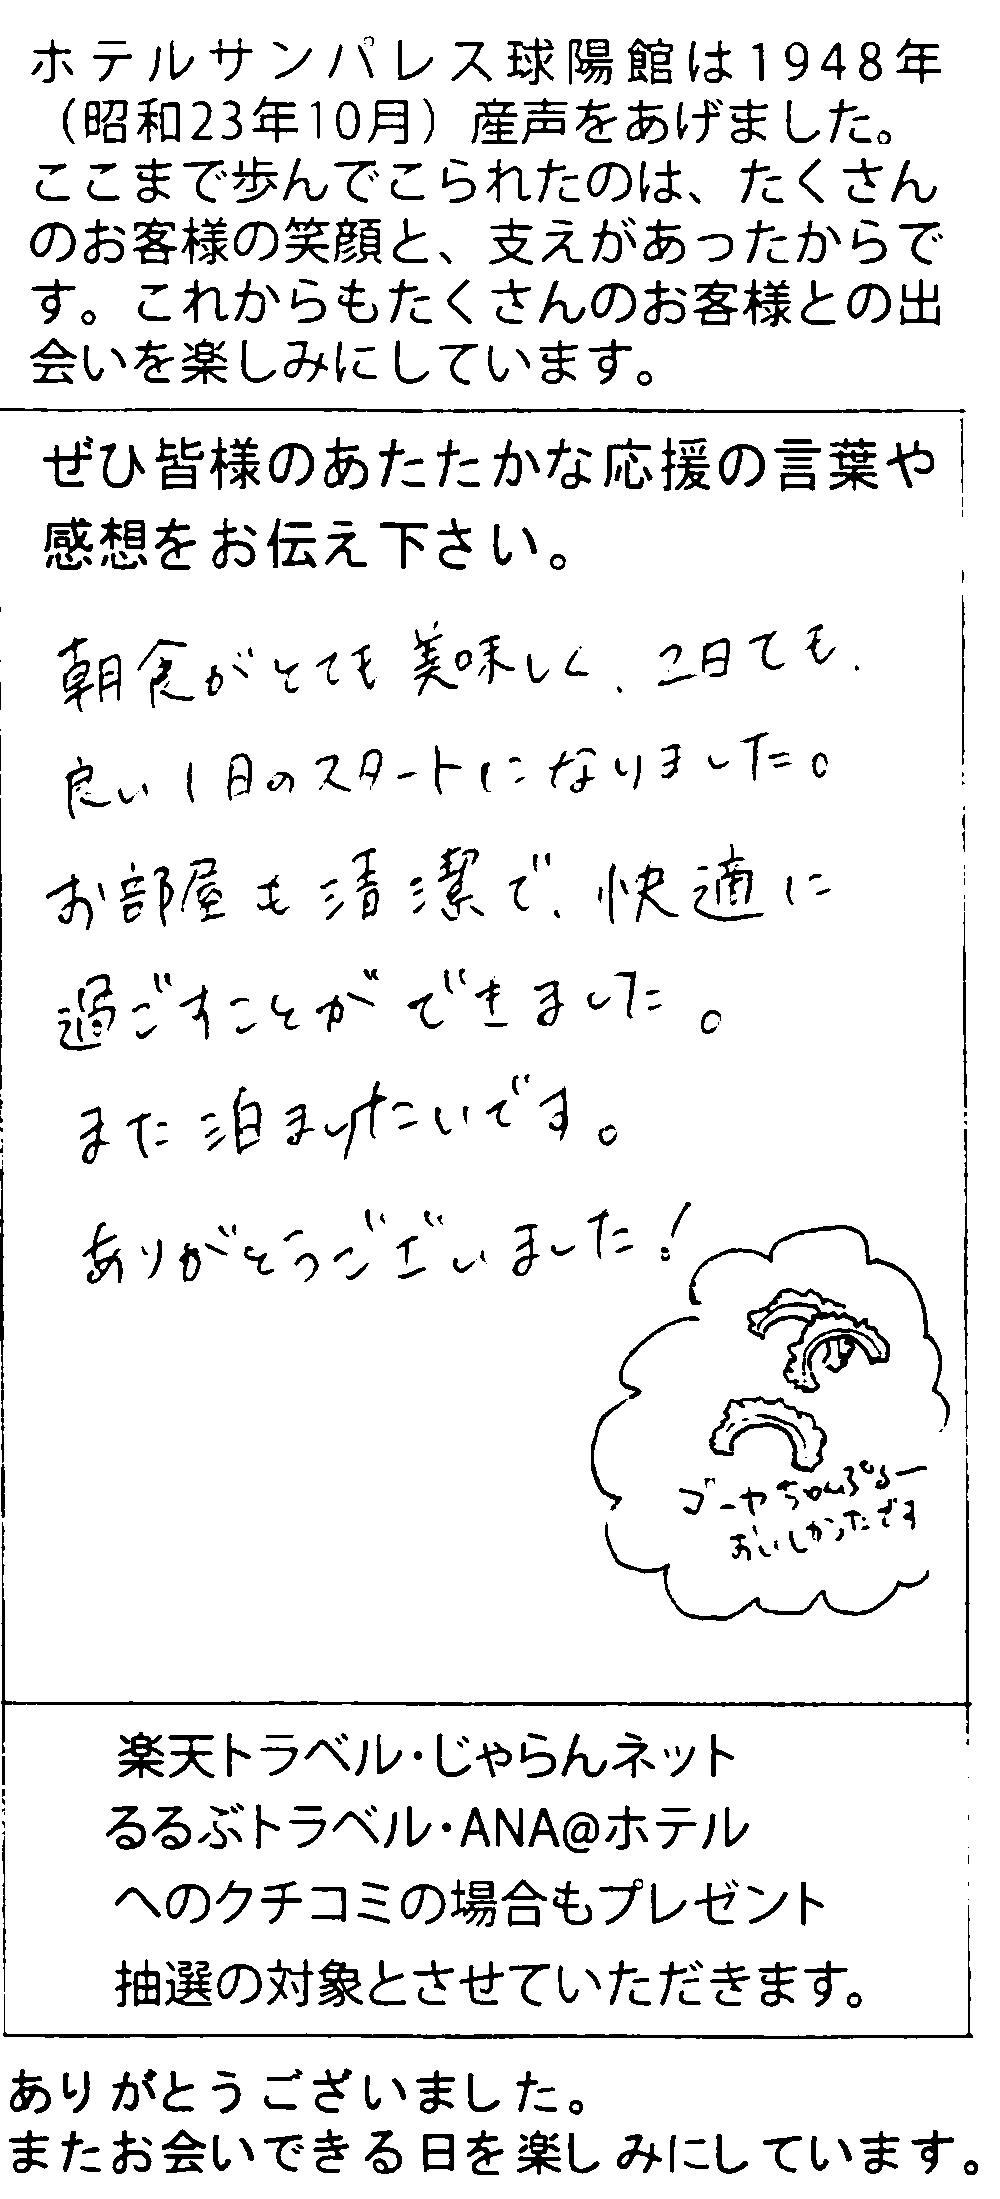 ホテルサンパレス球陽館は1948年
（昭和23年10月）産声をあげました。
ここまで歩んでこられたのは、たくさん
のお客様の笑顔と、支えがあったからで
す。これからもたくさんのお客様との出
会いを楽しみにしています。
ぜひ皆様のあたたかな応援の言葉や
感想をお伝え下さい。
朝食がとても美味しく、2日とも、
良い1日のスタートになりました。
お部屋も清潔で、快適に
過ごすことができました。
また泊まりたいです。
ありがとうございました！
ゴーヤちゃんぷるー
おいしかったです
楽天トラベル・じゃらんネット
るるぶトラベル・ANA@ホテル
へのクチコミの場合もプレゼント
抽選の対象とさせていただきます。
ありがとうございました。
またお会いできる日を楽しみにしています。